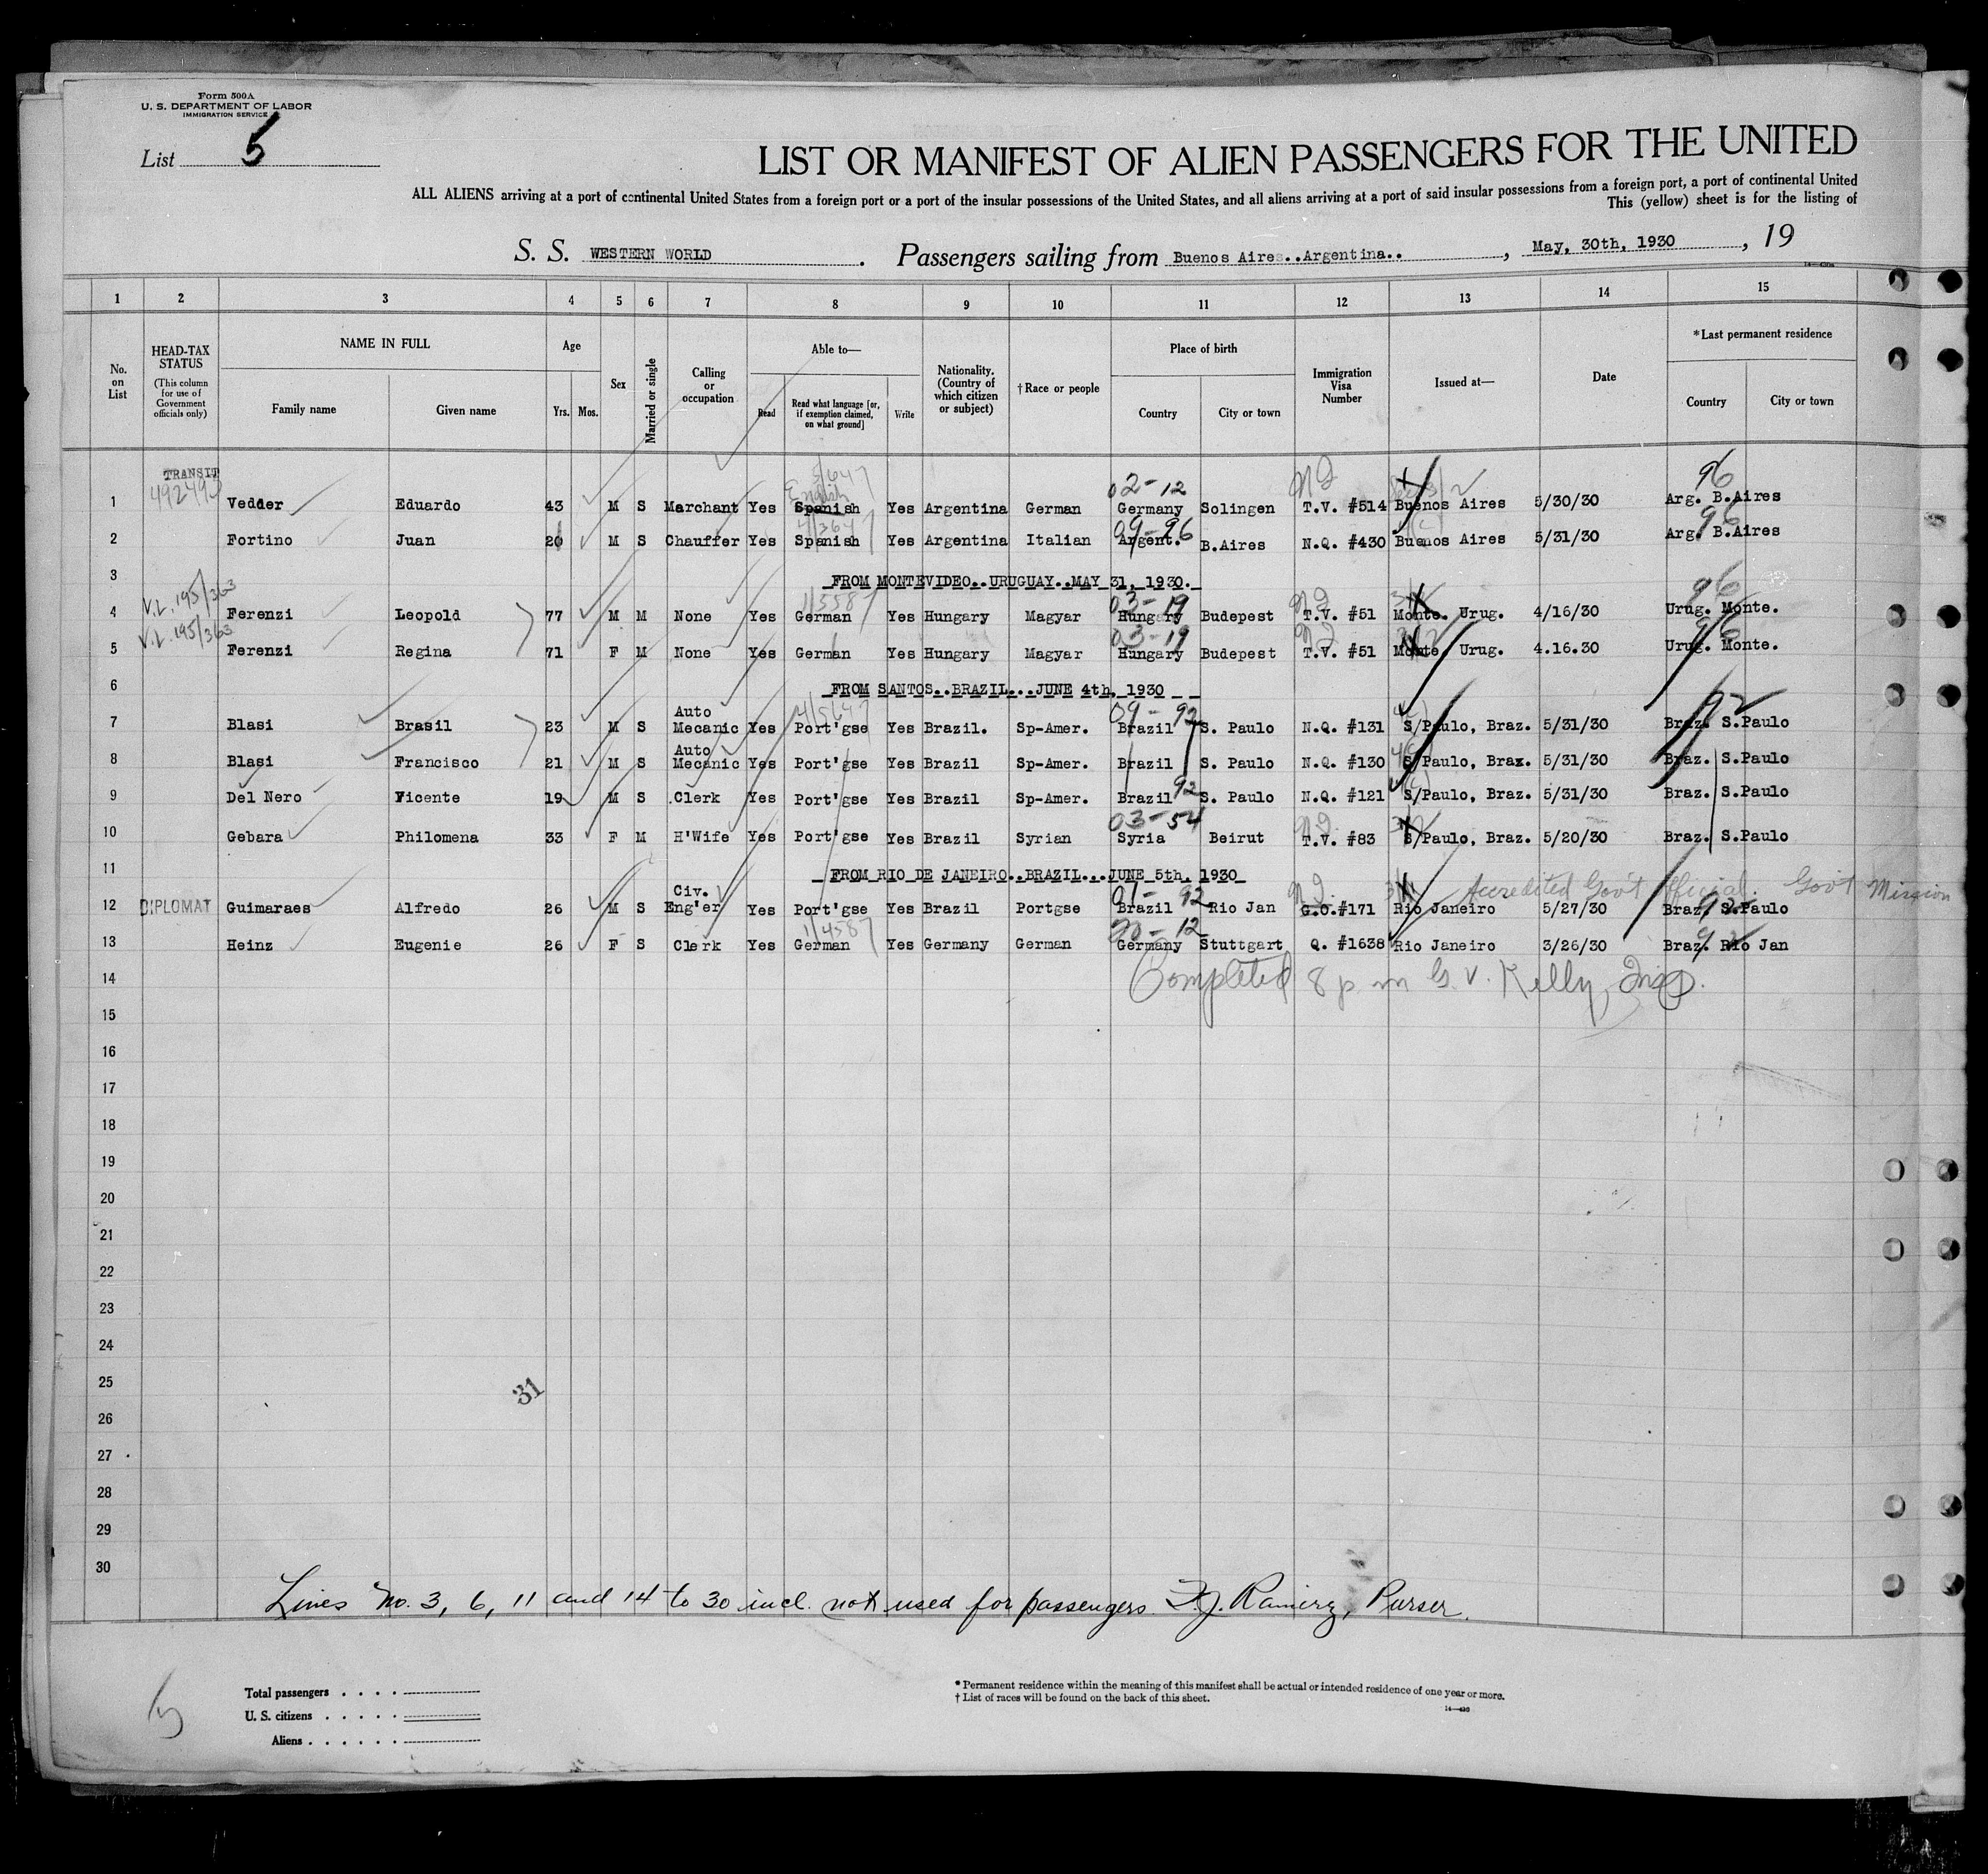 Form 500A
U. S. DEPARTMENT OF LABOR
IMMIGRATION SERVICE
List 5
LIST OR MANIFEST OF ALIEN PASSENGERS FOR THE UNITED
ALL ALIENS arriving at a port of continental United States from a foreign port or a port of the insular possessions of the United States, and all aliens arriving at a port of said insular possessions from a foreign port, a port of continental United
This (yellow) sheet is for the listing of
S. S. WESTERN WORLD . Passengers sailing from Buenos Aires..Argentina.. , May, 30th, 1930 , 19
1 2 3 4 5 6 7 8 9 10 11 12 13 14 15
No. on List
HEAD-TAX STATUS
(This column for use of Government officials only)
NAME IN FULL
Family name Given name
Age
Yrs. Mos.
Sex
Married or single
Calling or occupation
Able to—
Read
Read what language [or, if exemption claimed, on what ground]
Write
Nationality. (Country of which citizen or subject)
† Race or people
Place of birth
Country City or town
Immigration Visa Number
Issued at—
Date
*Last permanent residence
Country City or town
TRANSIT
English
02-12
96
1 Vedder Eduardo 43 M S Marchant Yes Spanish Yes Argentina German Germany Solingen T.V. #514 Buenos Aires 5/30/30 Arg. B.Aires
09-96
96
2 Fortino Juan 20 M S Chauffer Yes Spanish Yes Argentina Italian Argent. B.Aires N.Q. #430 Buenos Aires 5/31/30 Arg. B.Aires
3 FROM MONTEVIDEO..URUGUAY..MAY 31, 1930.
V.L. 195/363
03-19
96
4 Ferenzi Leopold 77 M M None Yes German Yes Hungary Magyar Hungary Budepest T.V. #51 Monte. Urug. 4/16/30 Urug. Monte.
V.L. 195/363
03-19
96
5 Ferenzi Regina 71 F M None Yes German Yes Hungary Magyar Hungary Budepest T.V. #51 Monte. Urug. 4.16.30 Urug. Monte.
6 FROM SANTOS..BRAZIL...JUNE 4th, 1930
09-92
92
7 Blasi Brasil 23 M S Auto Mecanic Yes Port'gse Yes Brazil. Sp-Amer. Brazil S. Paulo N.Q. #131 S/Paulo, Braz. 5/31/30 Braz. S.Paulo
8 Blasi Francisco 21 M S Auto Mecanic Yes Port'gse Yes Brazil Sp-Amer. Brazil S. Paulo N.Q. #130 S/Paulo, Brax. 5/31/30 Braz. S.Paulo
92
9 Del Nero Vicente 19 M S Clerk Yes Port'gse Yes Brazil Sp-Amer. Brazil S. Paulo N.Q. #121 S/Paulo, Braz. 5/31/30 Braz. S.Paulo
03-54
10 Gebara Philomena 33 F M H'Wife Yes Port'gse Yes Brazil Syrian Syria Beirut T.V. #83 S/Paulo, Braz. 5/20/30 Braz. S.Paulo
11 FROM RIO DE JANEIRO..BRAZIL...JUNE 5th, 1930
01-92
Accredited Gov't Official. Gov't Mission
12 DIPLOMAT Guimaraes Alfredo 26 M S Civ. Eng'er Yes Port'gse Yes Brazil Portgse Brazil Rio Jan G.O.#171 Rio Janeiro 5/27/30 Braz. S.Paulo
20-12
92
13 Heinz Eugenie 26 F S Clerk Yes German Yes Germany German Germany Stuttgart Q. #1638 Rio Janeiro 3/26/30 Braz. Rio Jan
14 Completed 8 p m G. V. Kelly, Insp.
15
16
17
18
19
20
21
22
23
24
25
31
26
27
28
29
30
Lines No. 3, 6, 11 and 14 to 30 incl. not used for passengers. F.J. Ramirez, Purser.
Total passengers
U. S. citizens
Aliens
* Permanent residence within the meaning of this manifest shall be actual or intended residence of one year or more.
† List of races will be found on the back of this sheet.
14—430